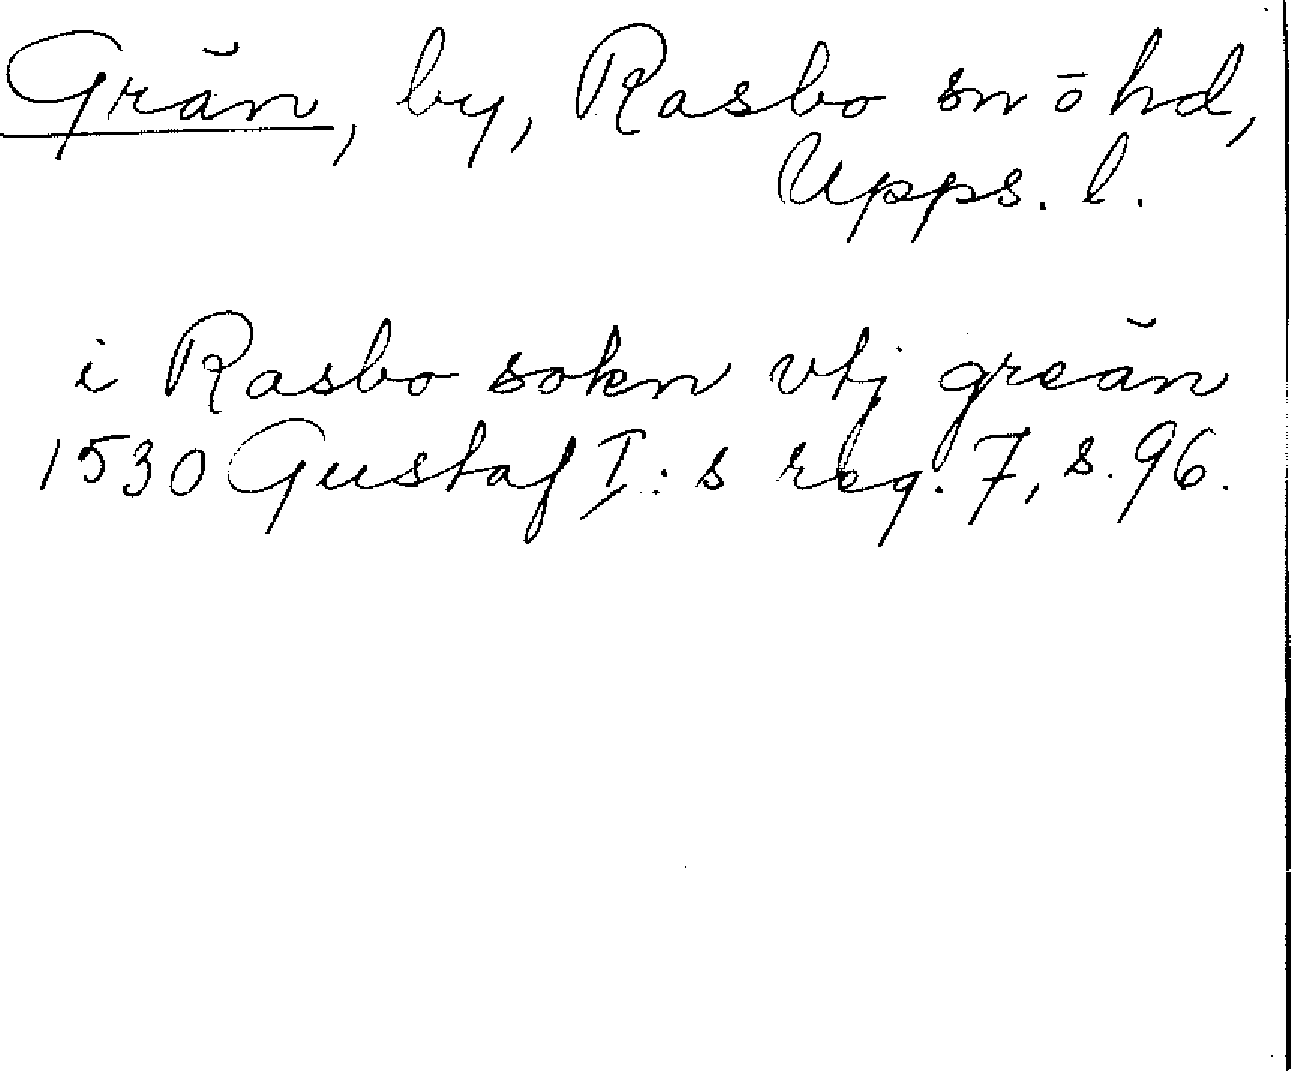 Grän, by, Rasbo sn ō hd,
Upps. l.
i Rasbo sokn vtj greän
1530 Gustaf I:s reg. 7, s. 96.